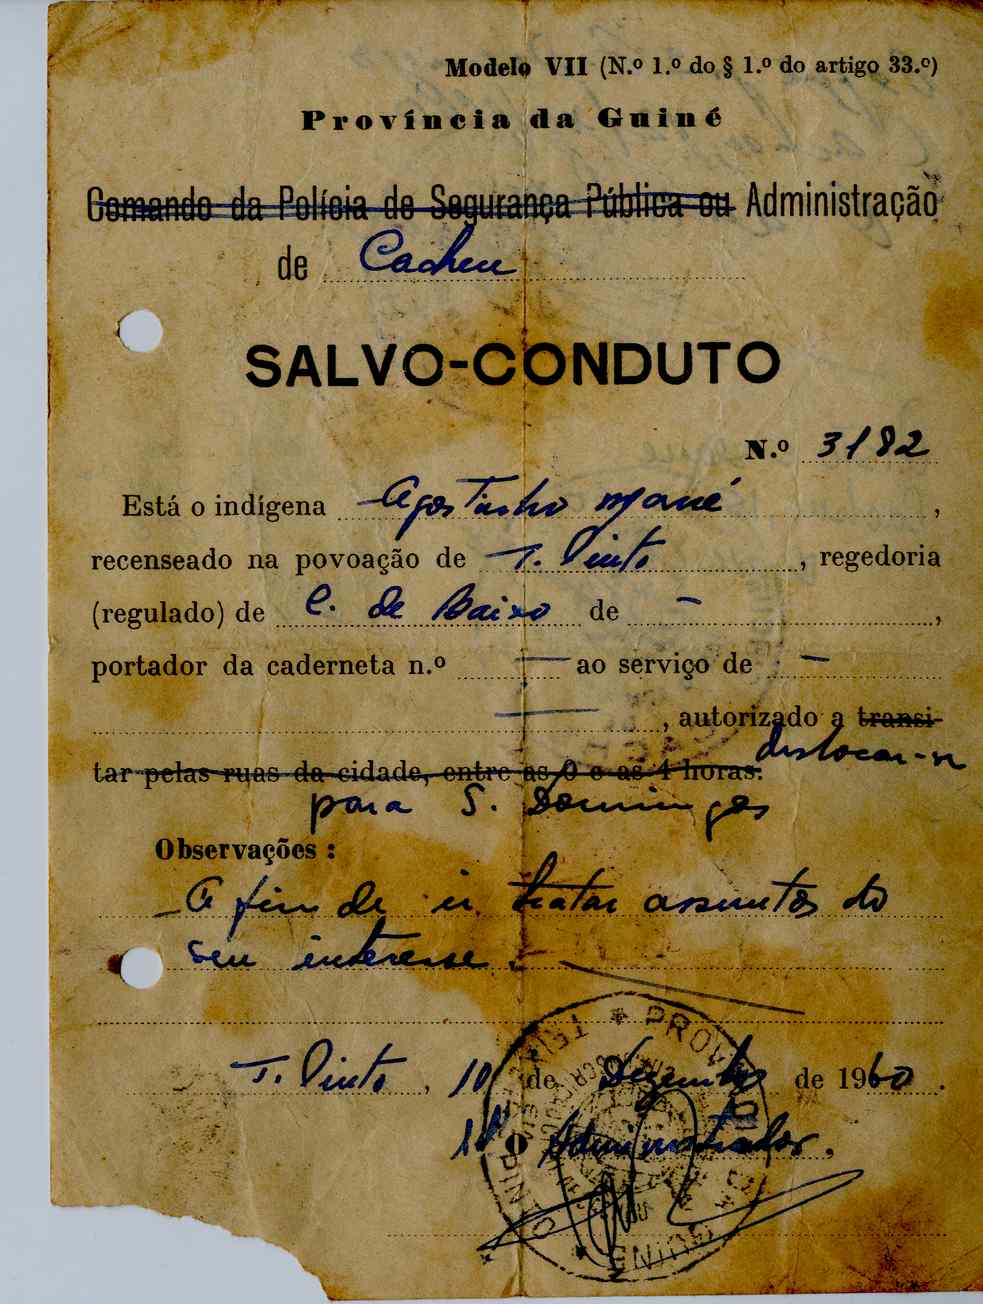 Modelo VII (N.º 1.º do § 1.º do artigo 33.º)
Província da Guiné
Comando da Polícia de Segurança Pública ou Administração
de Cacheu
SALVO-CONDUTO
N.º 3182
Está o indígena Agostinho Mané,
recenseado na povoação de T. Pinto, regedoria
(regulado) de C. de Baixo de –,
portador da caderneta n.º — ao serviço de –
—, autorizado a transi-
tar pelas ruas da cidade, entre as 0 e as 4 horas.
deslocar-se
para S. Domingos
Observações:
A fim de ir tratar assuntos do
seu interesse.
T. Pinto, 10 de Dezembro de 1960.
O Administrador,
PROV
GUINÉ
TEIXEIRA PINTO